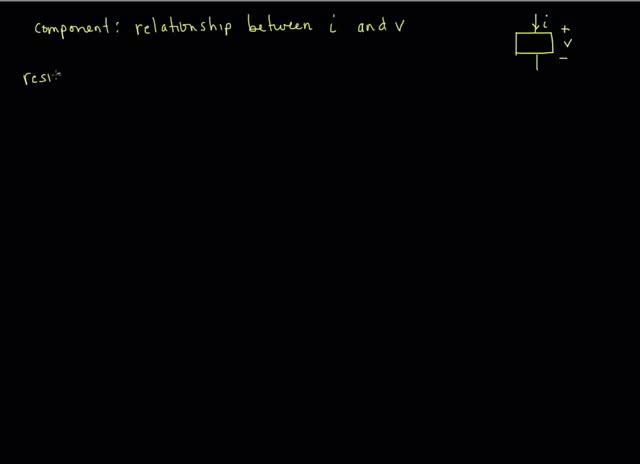 component: relationship between i and v
i
+
v
−
resi